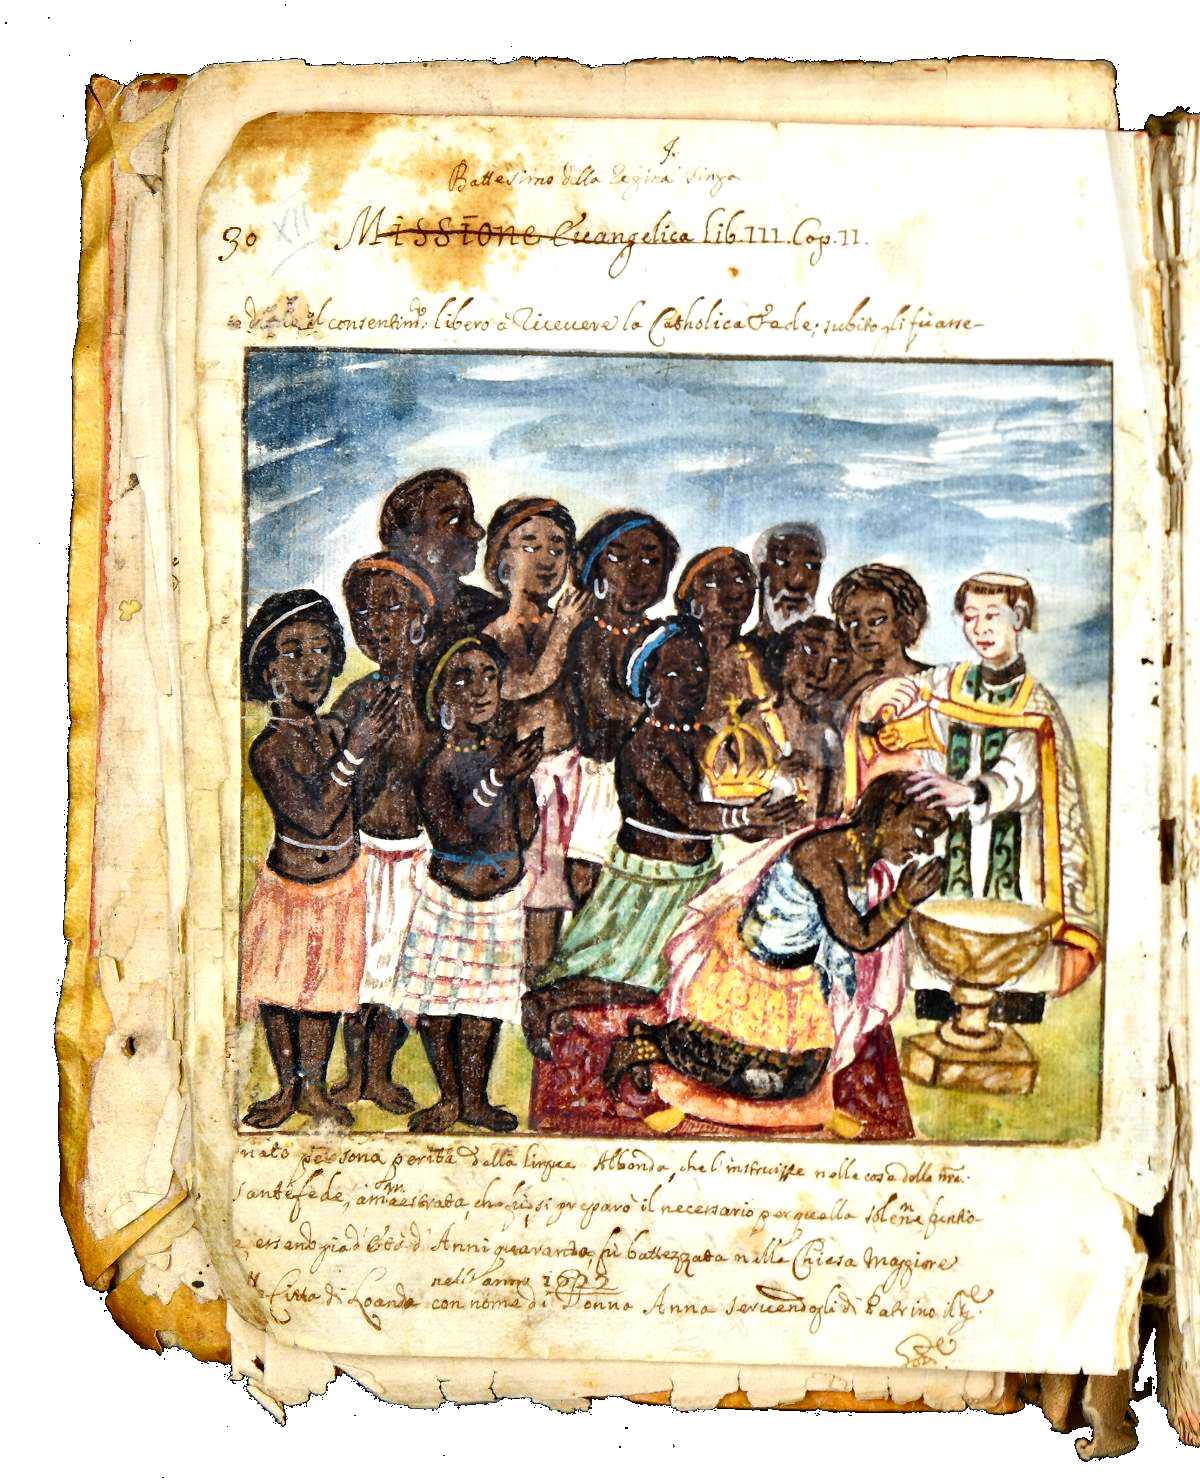 J.
Battesimo della Regina Singa
30 XIII Missione Euangelica lib. III. Cap. II.
il consentimto. libero à riceuere la Catholica Fede; subito gli fù asse-
nato persona perita della lingua Abonda, che l'instruisse nelle cose della nrã.
santa fede, amaestrata, che fù, si preparò il necessario per quella solenne funtio-
e, essendo gia d'Età d'Anni quaranta, fù battezzata nella Chiesa Maggiore
nell'anno 1622
Citta di Loanda con nome di Donna Anna seruendogli di Patrino il